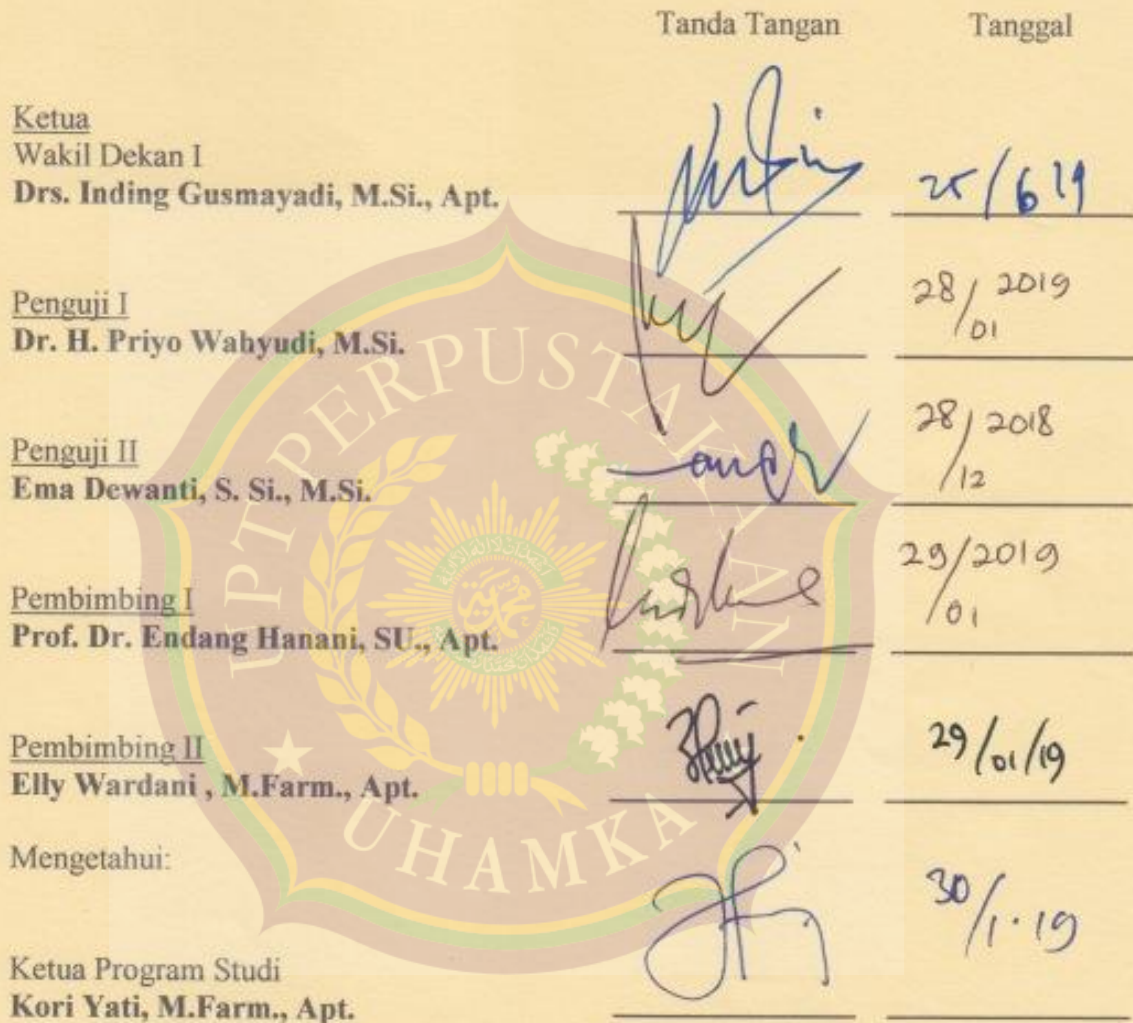 Tanda Tangan Tanggal
Ketua
Wakil Dekan I
Drs. Inding Gusmayadi, M.Si., Apt.
25/6 19
Penguji I
Dr. H. Priyo Wahyudi, M.Si.
28/01 2019
Penguji II
Ema Dewanti, S. Si., M.Si.
28/12 2018
Pembimbing I
Prof. Dr. Endang Hanani, SU., Apt.
29/01 2019
Pembimbing II
Elly Wardani , M.Farm., Apt.
29/01/19
Mengetahui:
30/1.19
Ketua Program Studi
Kori Yati, M.Farm., Apt.
UPT PERPUSTAKAAN
UHAMKA